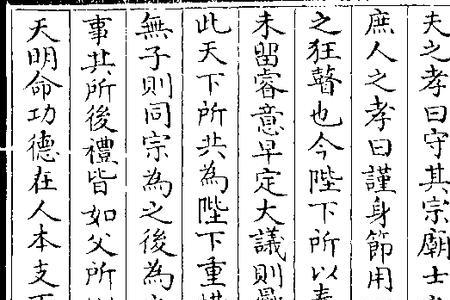 夫之孝曰守其宗廟士
庶人之孝曰謹身節用
之狂瞽也今陛下所以
未留睿意早定大議則
此天下所共為陛下重
無子則同宗為之後為
事其所後禮皆如父所
天明命功德在人本支